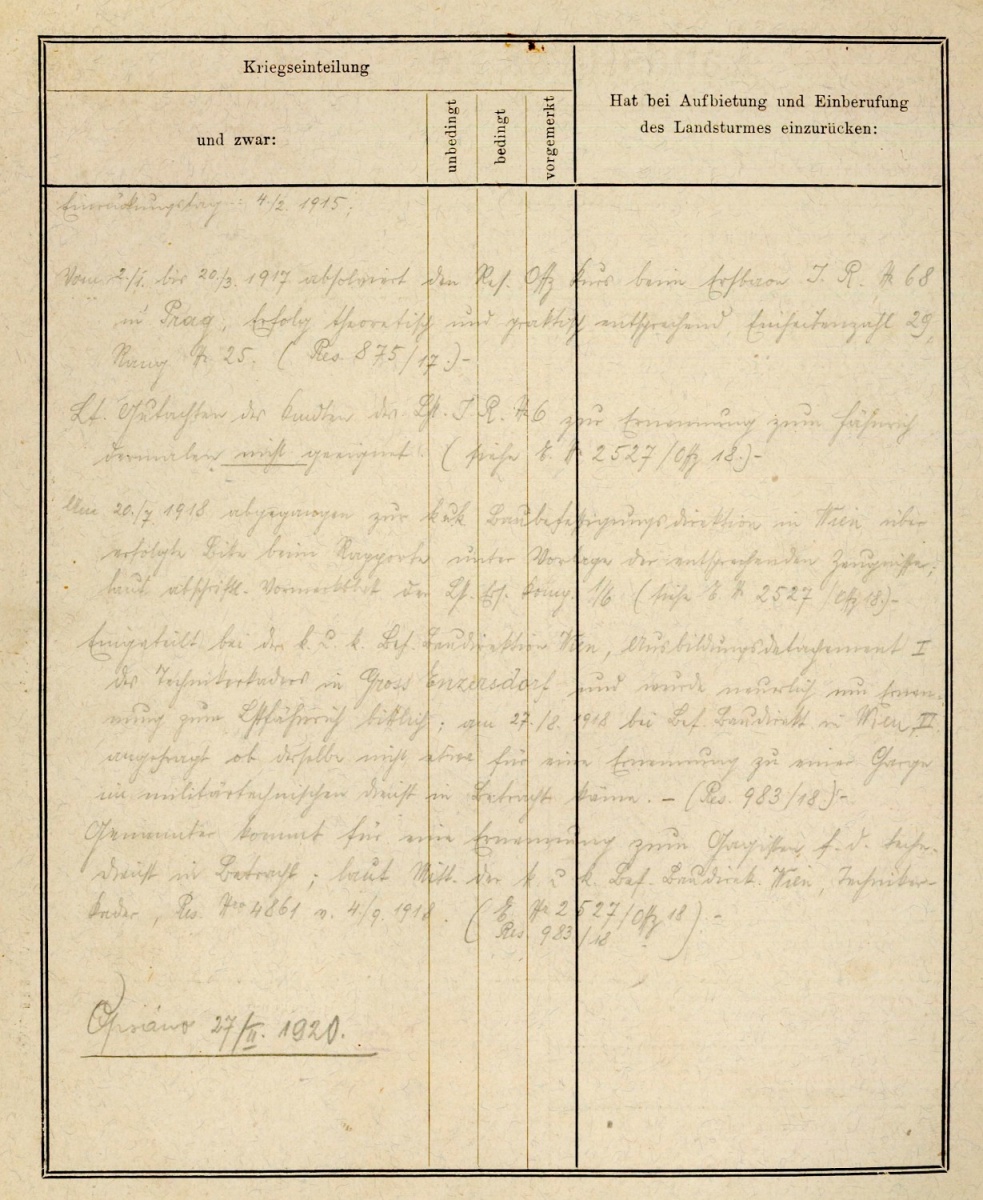 Kriegseinteilung
und zwar:
unbedingt
bedingt
vorgemerkt
Hat bei Aufbietung und Einberufung
des Landsturmes einzurücken:
Einrückungstag: 4./2. 1915;
Vom 2./1. bis 20./3. 1917 absolviert den Res. Offz Kurs beim Ersbaon I. R. № 68
in Prag, Erfolg theoretisch und praktisch entsprechend, Einheitenzahl 29,
Rang № 25. (Res. 875/17.)-
Lt. Gutachten des Kmdten des Lst. I. R. № 6 zur Ernennung zum Fähnrich
dermalen nicht geeignet. (siehe E. № 2527/Offz 18.)-
Am 20./7 1918 abgegangen zur k.u.k. Baubefestigungsdirektion in Wien über
erfolgte Bitte beim Rapporte unter Vorlage der entsprechenden Zeugnisse;
laut abschriftl. der Lst. Ers. Komp. 1/6 (siehe E № 2527/Offz 18.)-
Eingeteilt bei der k. u. k. Bef. Baudirektion Wien, Ausbildungsdetachement I
des Technikerkaders in Gross Enzersdorf und wurde neuerlich um Ernen-
nung zum Lstfähnrich bittlich; am 27./8. 1918 bei Bef. Baudirekt. in Wien, II
angefragt ob derselbe nicht etwa für eine Ernennung zu einer Charge
im militärtechnischen Dienst in Betracht käme. - (Res. 983/18.)-
Genannter kommt für eine Ernennung zum Gagisten f. d. techn.
Dienst in Betracht; laut Mitt. der k. u. k. Bef. Baudirek. Wien, Techniker-
kader, Res. Nro 4861 v. 4./9. 1918. (E № 2527/Offz 18
Res. 983/18).-
27/II. 1920.